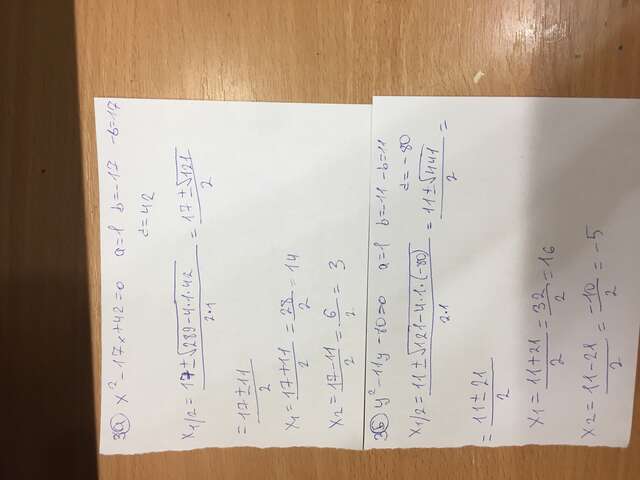 3a) x² - 17x + 42 = 0 a=1 b=-17 -b=17
c=42
x1/2 = 17 ± √289-4·1·42 / 2·1 = 17 ± √121 / 2
= 17 ± 11 / 2
x1 = 17+11 / 2 = 28 / 2 = 14
x2 = 17-11 / 2 = 6 / 2 = 3
3б) y² - 11y - 80 = 0 a=1 b=-11 -b=11
c=-80
x1/2 = 11 ± √121-4·1·(-80) / 2·1 = 11 ± √441 / 2 =
= 11 ± 21 / 2
x1 = 11+21 / 2 = 32 / 2 = 16
x2 = 11-21 / 2 = -10 / 2 = -5